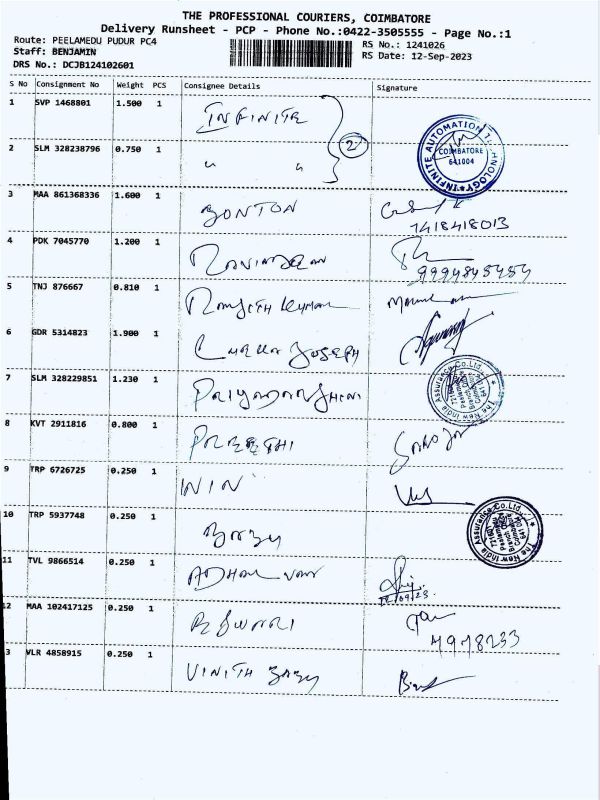 THE PROFESSIONAL COURIERS, COIMBATORE
Delivery Runsheet - PCP - Phone No.:0422-3505555 - Page No.:1
Route: PEELAMEDU PUDUR PC4
RS No.: 1241026
Staff: BENJAMIN
RS Date: 12-Sep-2023
DRS No.: DCJB124102601
S No Consignment No Weight PCS Consignee Details Signature
1 SVP 1468801 1.500 1 INFINITE
2 SLM 328238796 0.750 1 " "
2
INFINITE AUTOMATION TECHNOLOGY COIMBATORE 641004
3 MAA 861368336 1.600 1 BONTON
7418418013
4 PDK 7045770 1.200 1 RAVINDRAN
9994845454
5 TNJ 876667 0.810 1 RANJITH KUMAR
6 GDR 5314823 1.900 1 JOSEPH
7 SLM 328229851 1.230 1 PRIYADARSHINI
The New India Assurance Co.Ltd.
8 KVT 2911816 0.800 1 PREETHI
SAROJA
9 TRP 6726725 0.250 1 WIN
10 TRP 5937748 0.250 1 BABU
The New India Assurance Co.Ltd.
11 TVL 9866514 0.250 1
12/09/23.
12 MAA 102417125 0.250 1 ESWARI
7978233
3 VLR 4858915 0.250 1 VINITH BABU